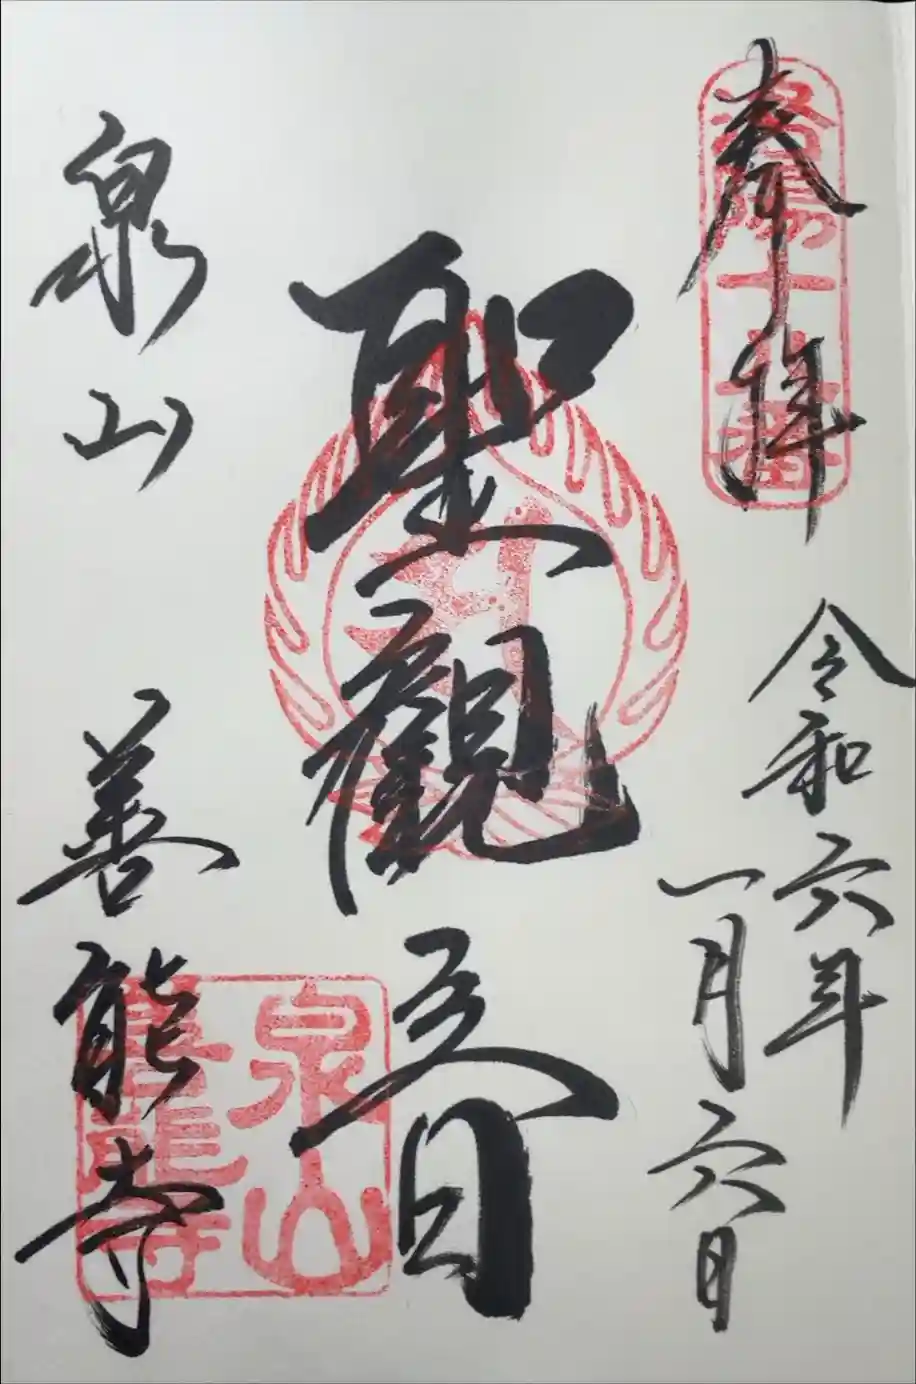 奉拝
洛陽十八番
令和六年
一月六日
聖観音
泉山 善能寺
泉山
善能寺